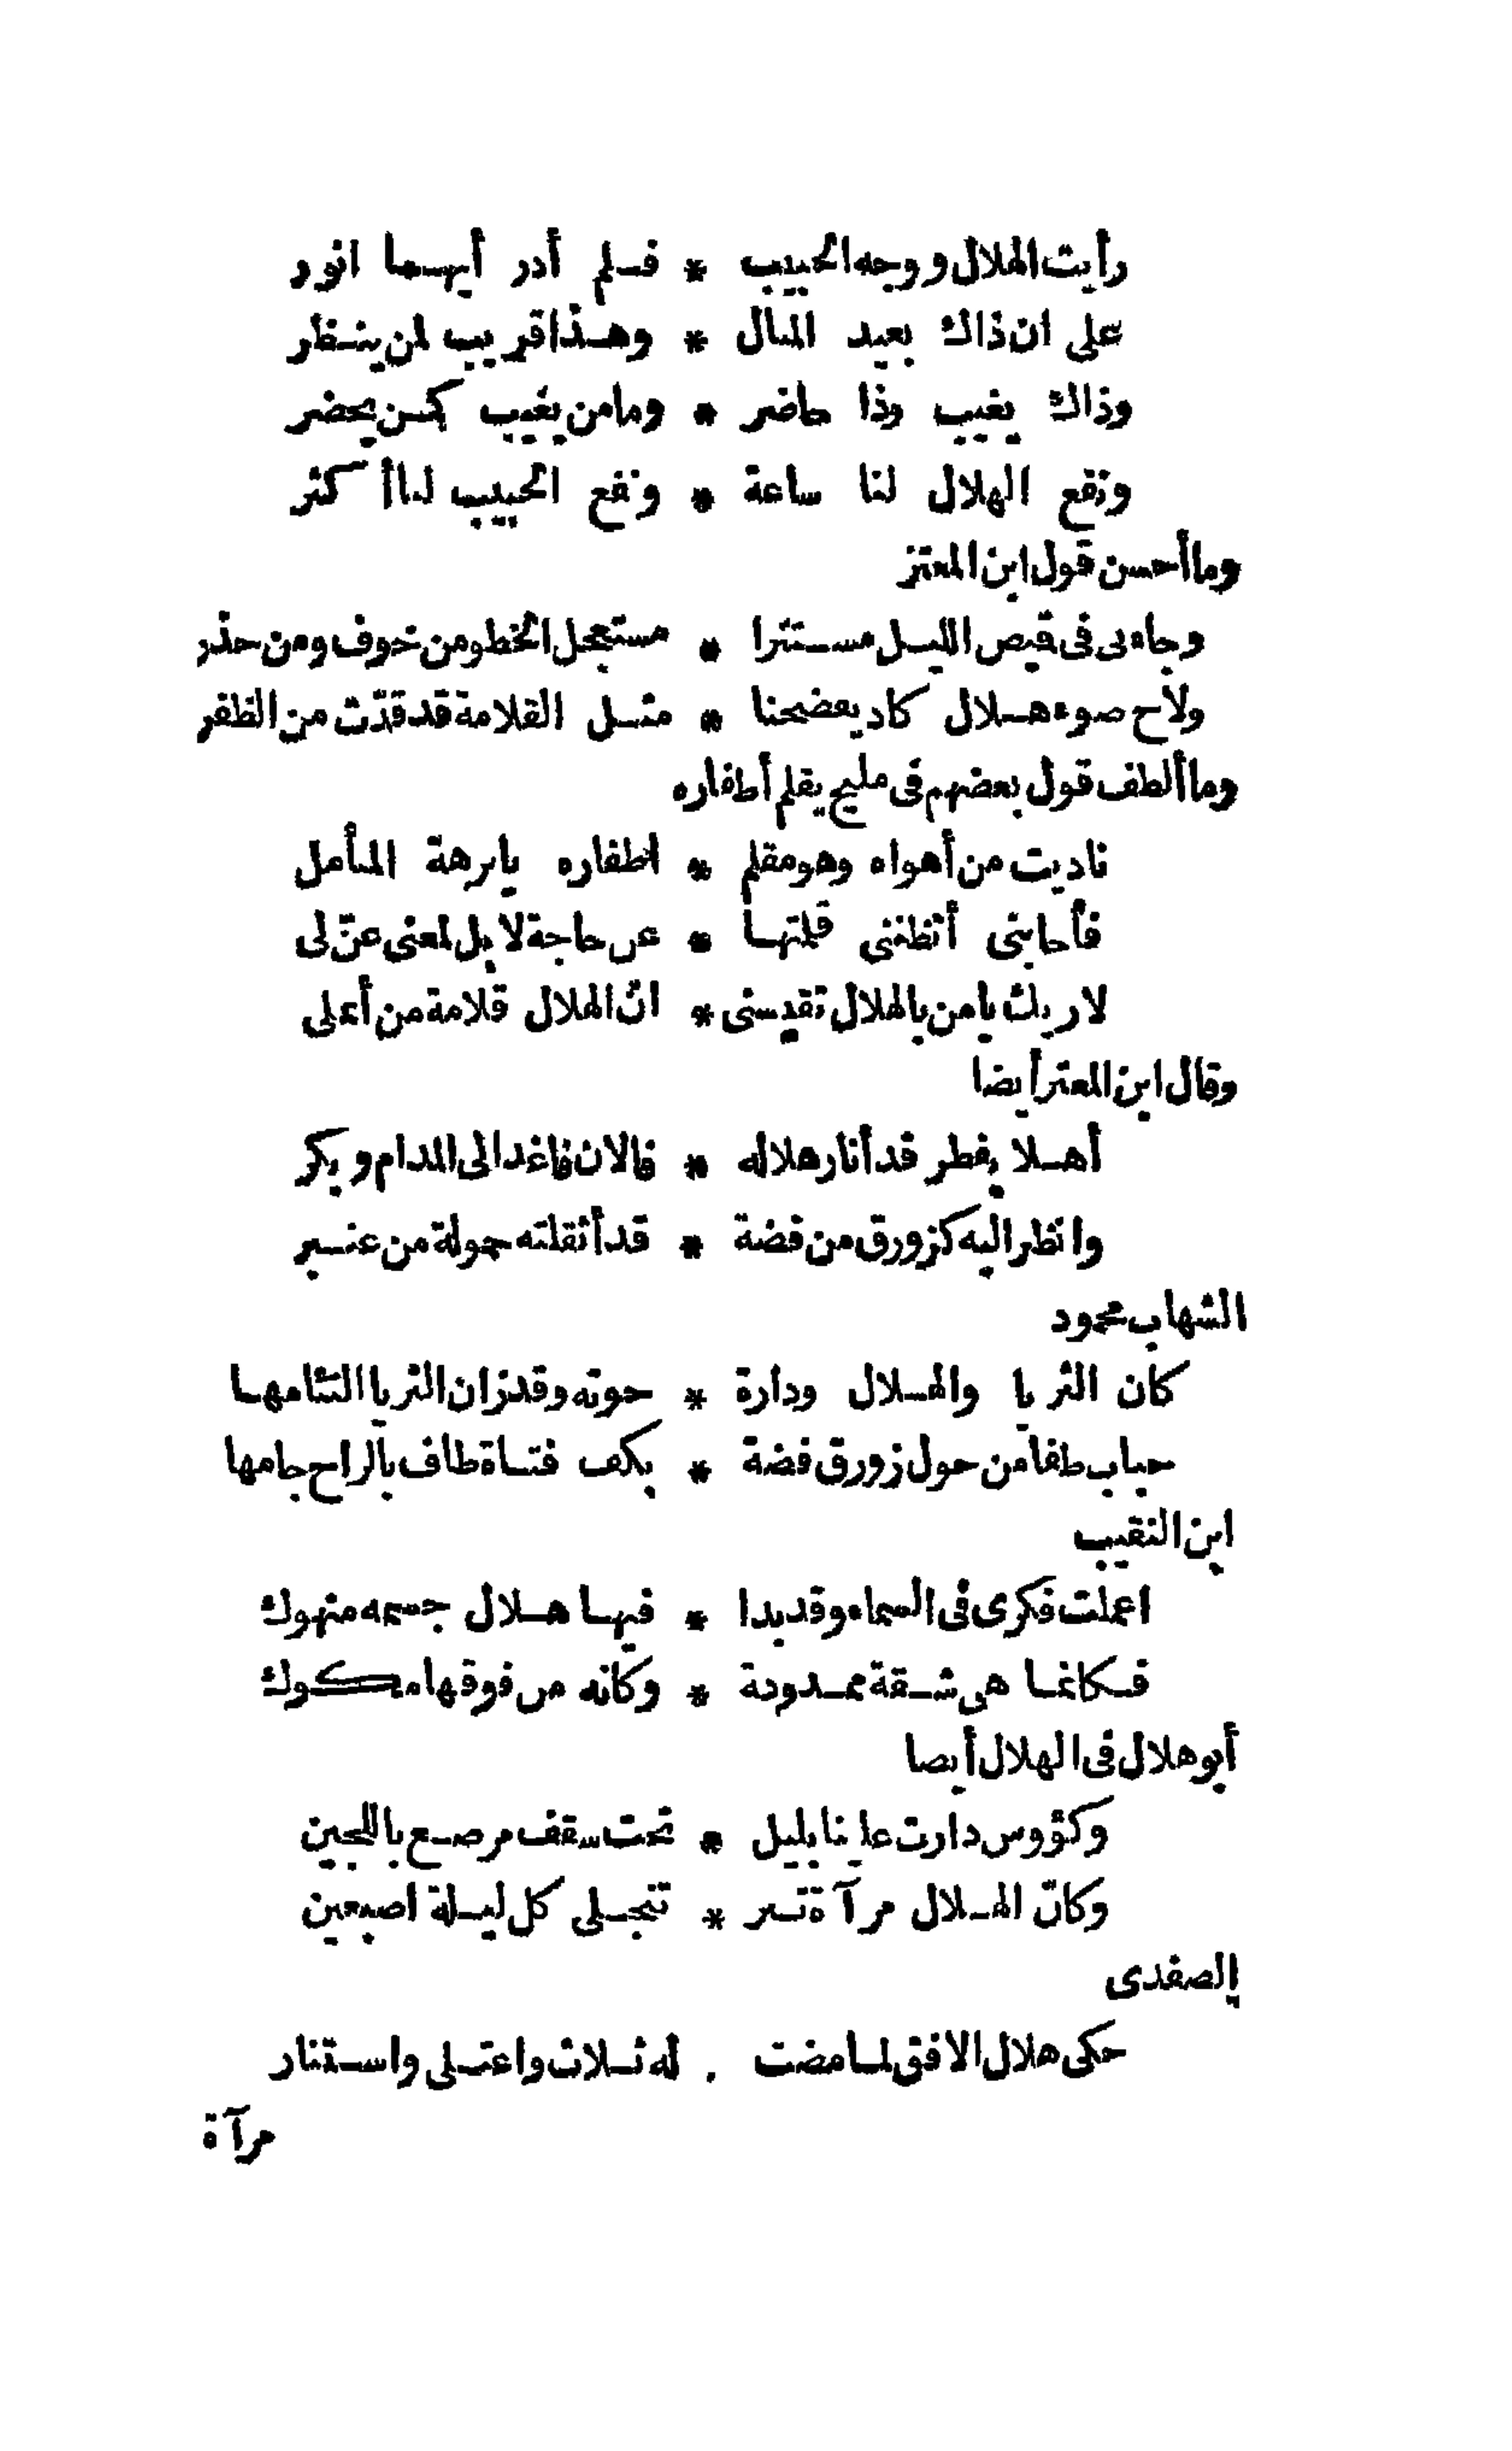 رأيت الهلال ووجه الحبيب * فلم أدر أيهما انور
على ان ذاك بعيد المنال * وهذا قريب لمن ينظر
وذاك يغيب وذا حاضر * وما من يغيب كمن يحضر
ونفع الهلال لنا ساعة * ونفع الحبيب لنا أكثر
وما أحسن قول ابن المعتز
وجاءنى فى قيص الليل مستترا * مستعجل الخطو من خوف ومن حذر
ولاح ضوء هلال كاد يفضحنا * مثل القلامة قد قدّت من الظفر
وما ألطف قول بعضهم فى مليح يقلم أظفاره
ناديت من أهواه وهو مقلم * اظفاره يا برهة المتأمل
فأجابنى أتظننى قلمتها * عن حاجة لا بل لمعنى عنّ لى
لاريك يا من بالهلال تقيسنى * انّ الهلال قلامة من أنملى
وقال ابن المعتز أيضا
أهلا بفطر قد أنار هلاله * فالان فاغد الى المدام وبكر
وانظر اليه كزورق من فضة * قد أثقلته حمولة من عنبر
الشهاب محمود
كان الثريا والهلال ودارة * حوته وقد زان الثريا التئامها
حباب طفا من حول زورق فضة * بكف فتاة طاف بالراح جامها
ابن النقيب
اعملت فكرى فى السماء وقد بدا * فيها هلال جسمه منهوك
فكانما هى شقة ممدودة * وكانه من فوقها مكوك
أبو هلال فى الهلال أيضا
وكؤوس دارت علينا بليل * تحت سقف مرصع باللجين
وكانّ الهلال مرآة تبر * تنجلى كل ليلة اصبعين
الصفدى
حكى هلال الافق لما مضت . له ثلاث واعتلى واستنار
مرآة